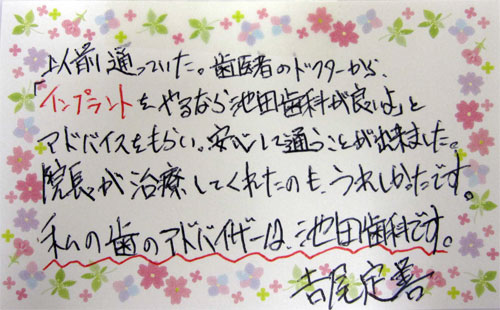 以前通っていた。歯医者のドクターから、
「インプラントをやるなら池田歯科が良いよ」と
アドバイスをもらい。安心して通うことが出来ました。
院長が治療してくれたのも、うれしかったです。
私の歯のアドバイザーは、池田歯科です。
吉尾定善